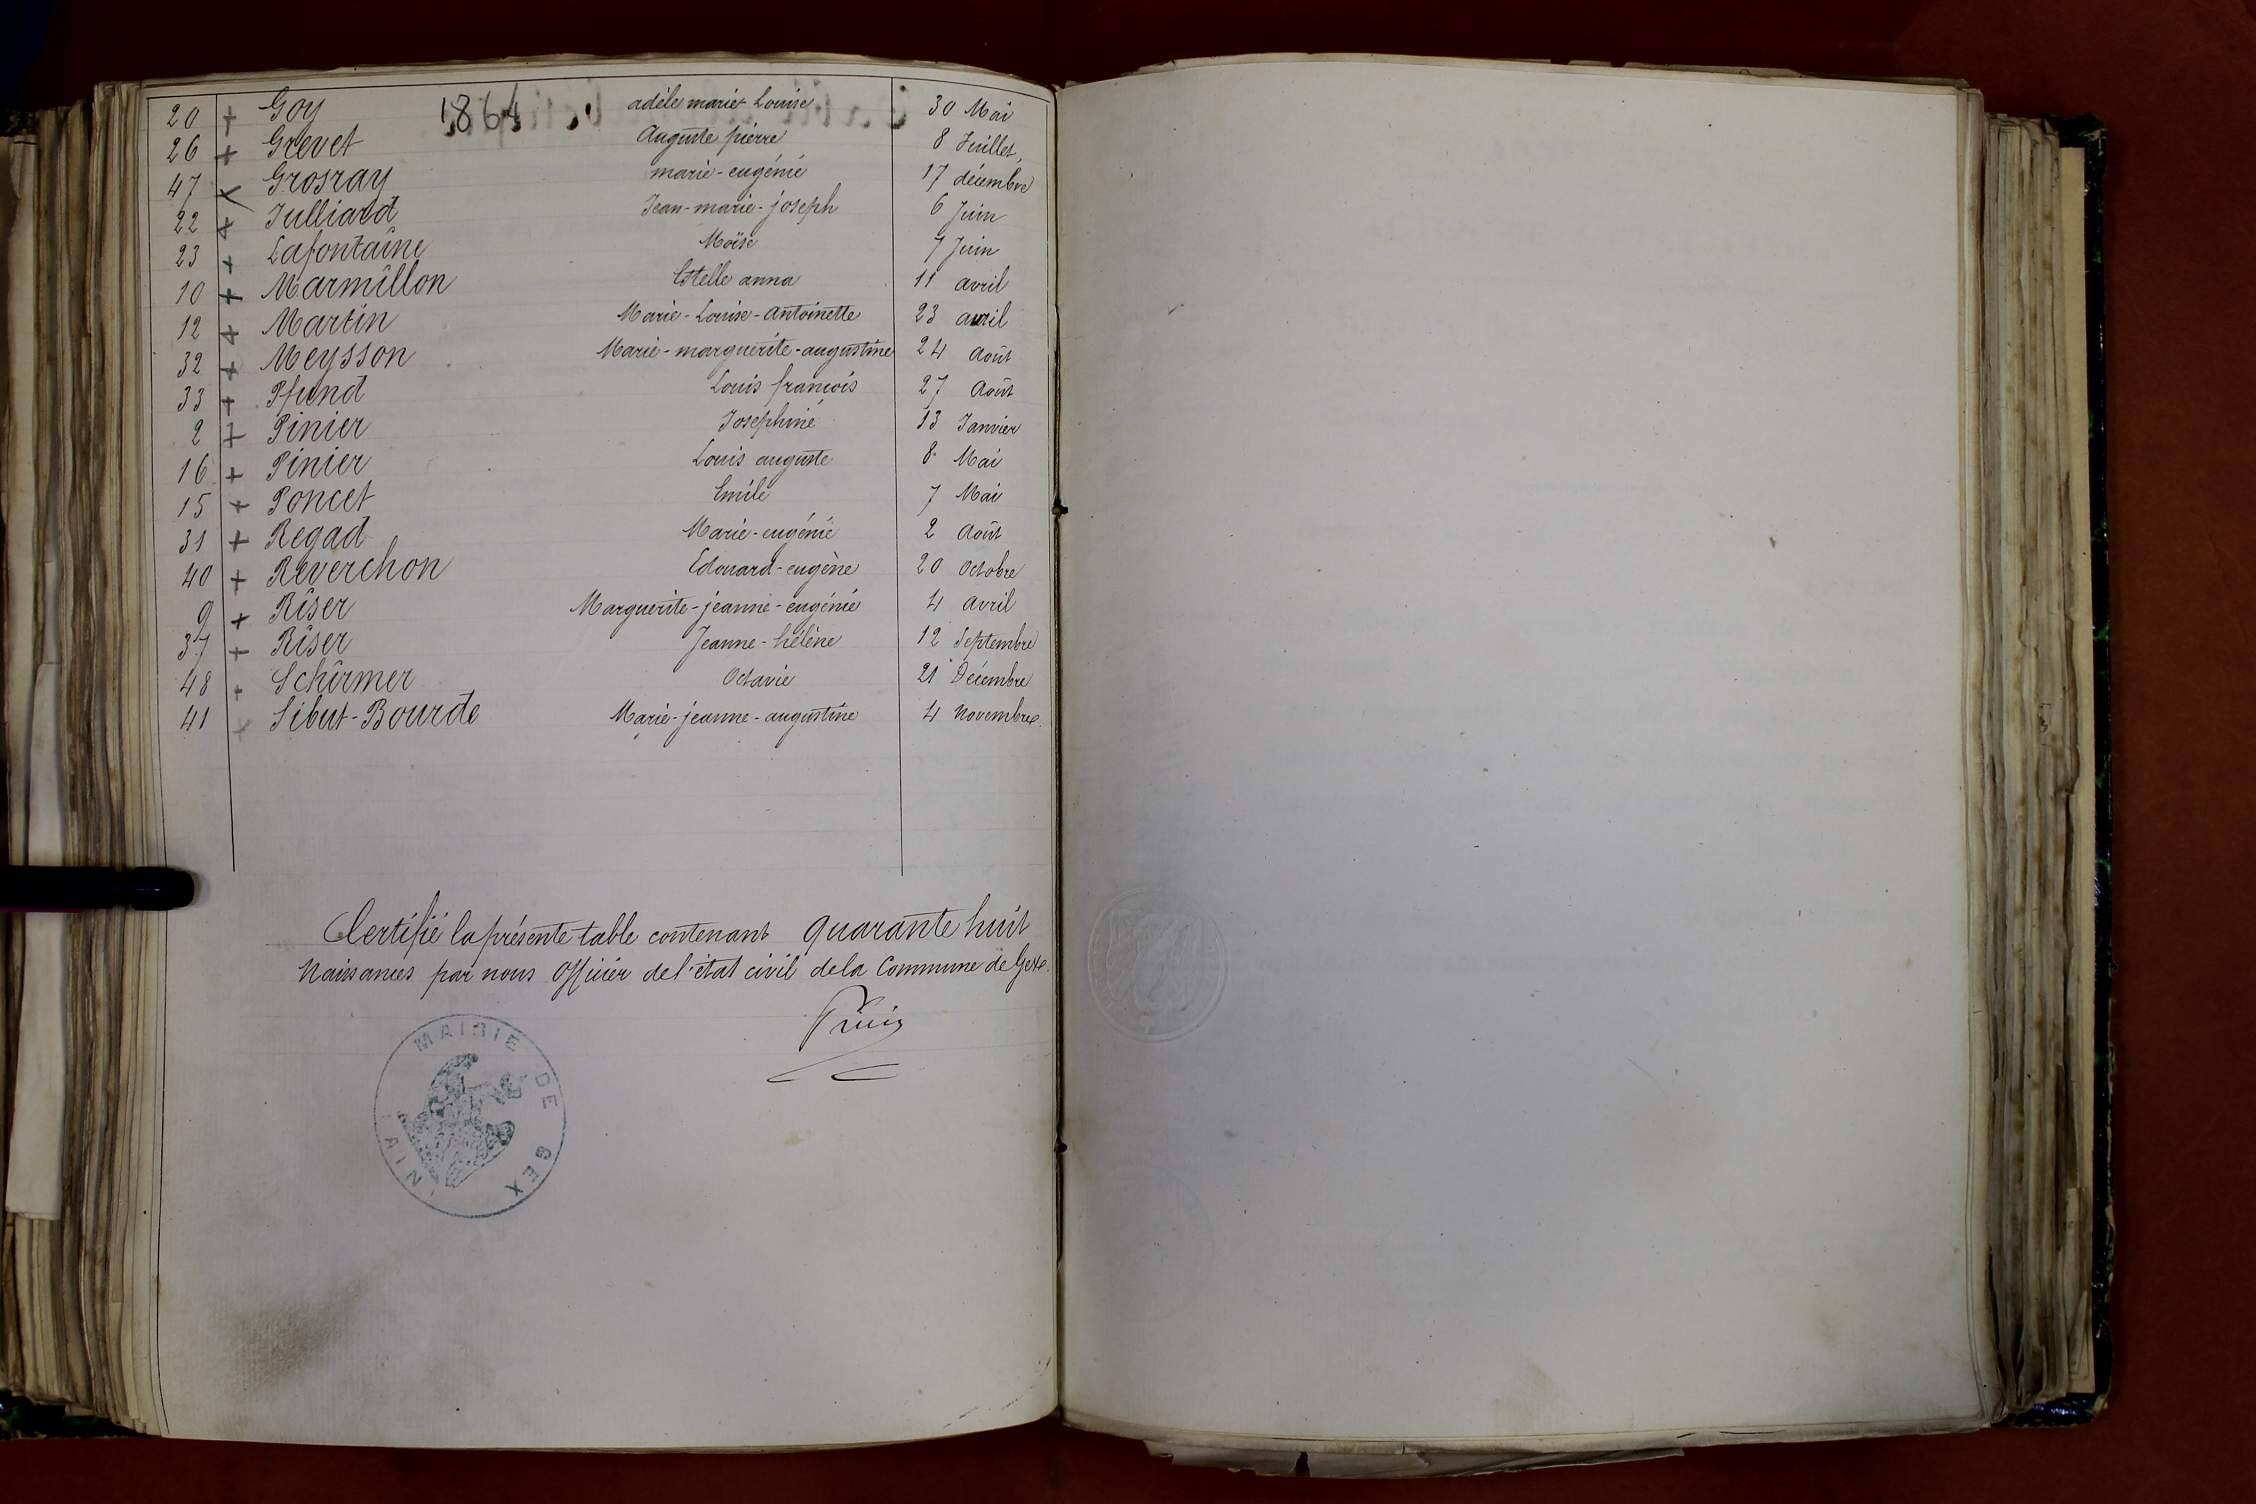 20 + Goy 1864 adèle marie Louise 30 Mai
26 + Grevet Auguste pierre 8 Juillet
47 + Grosray marie-eugénie 17 décembre
22 + Julliard Jean-marie-joseph 6 Juin
23 + Lafontaine Moïse 7 Juin
10 + Marmillon Estelle anna 11 avril
12 + Martin Marie-Louise-antoinette 23 avril
32 + Meysson Marie-marguerite-augustine 24 Août
33 + Pfund Louis françois 27 Août
2 + Pinier Josephine 13 Janvier
16 + Pinier Louis auguste 8 Mai
15 + Poncet Emile 7 Mai
31 + Regad Marie-eugénie 2 Août
40 + Reverchon Edouard-eugène 20 Octobre
9 + Riser Marguerite-jeanne-eugénie 4 avril
37 + Riser Jeanne-hélène 12 Septembre
48 + Schirmer Octavie 21 Décembre
41 + Sibut-Bourde Marie-jeanne-augustine 4 Novembre
Certifié la présente table contenant quarante huit
Naissances par nous Officier de l'état civil de la Commune de Gex.
MAIRIE DE GEX
AIN